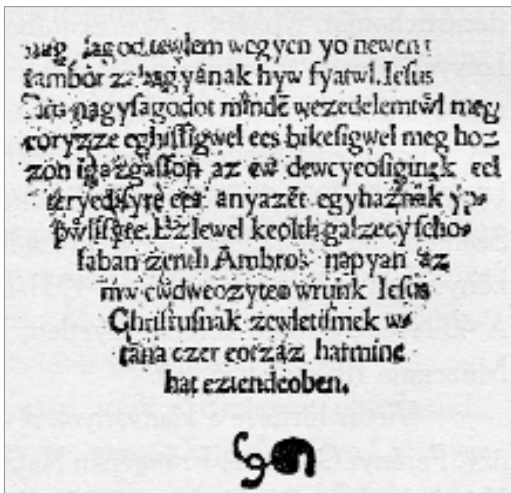 nag sagod tewlem wegyen yo newen t
tambor za hagyanak hyw fyatwl. Iesus
nagysagodot mindē wezedelemtwl meg
eoryzze eghissigwel ees bikesigwel meg hoz
zon igazgasson az ew dewcyeosiginek eel
teryedisyre ees anyazēt egyhaznak yp⸗
pwlisyre. Ez lewel keolth galzecy scho⸗
laban zenth Ambros napyan az
mw ewdweozyteo wrunk Iesus
Christusnak zewletisinek w⸗
tana ezer eotzaz harmincz
hat eztendeoben.